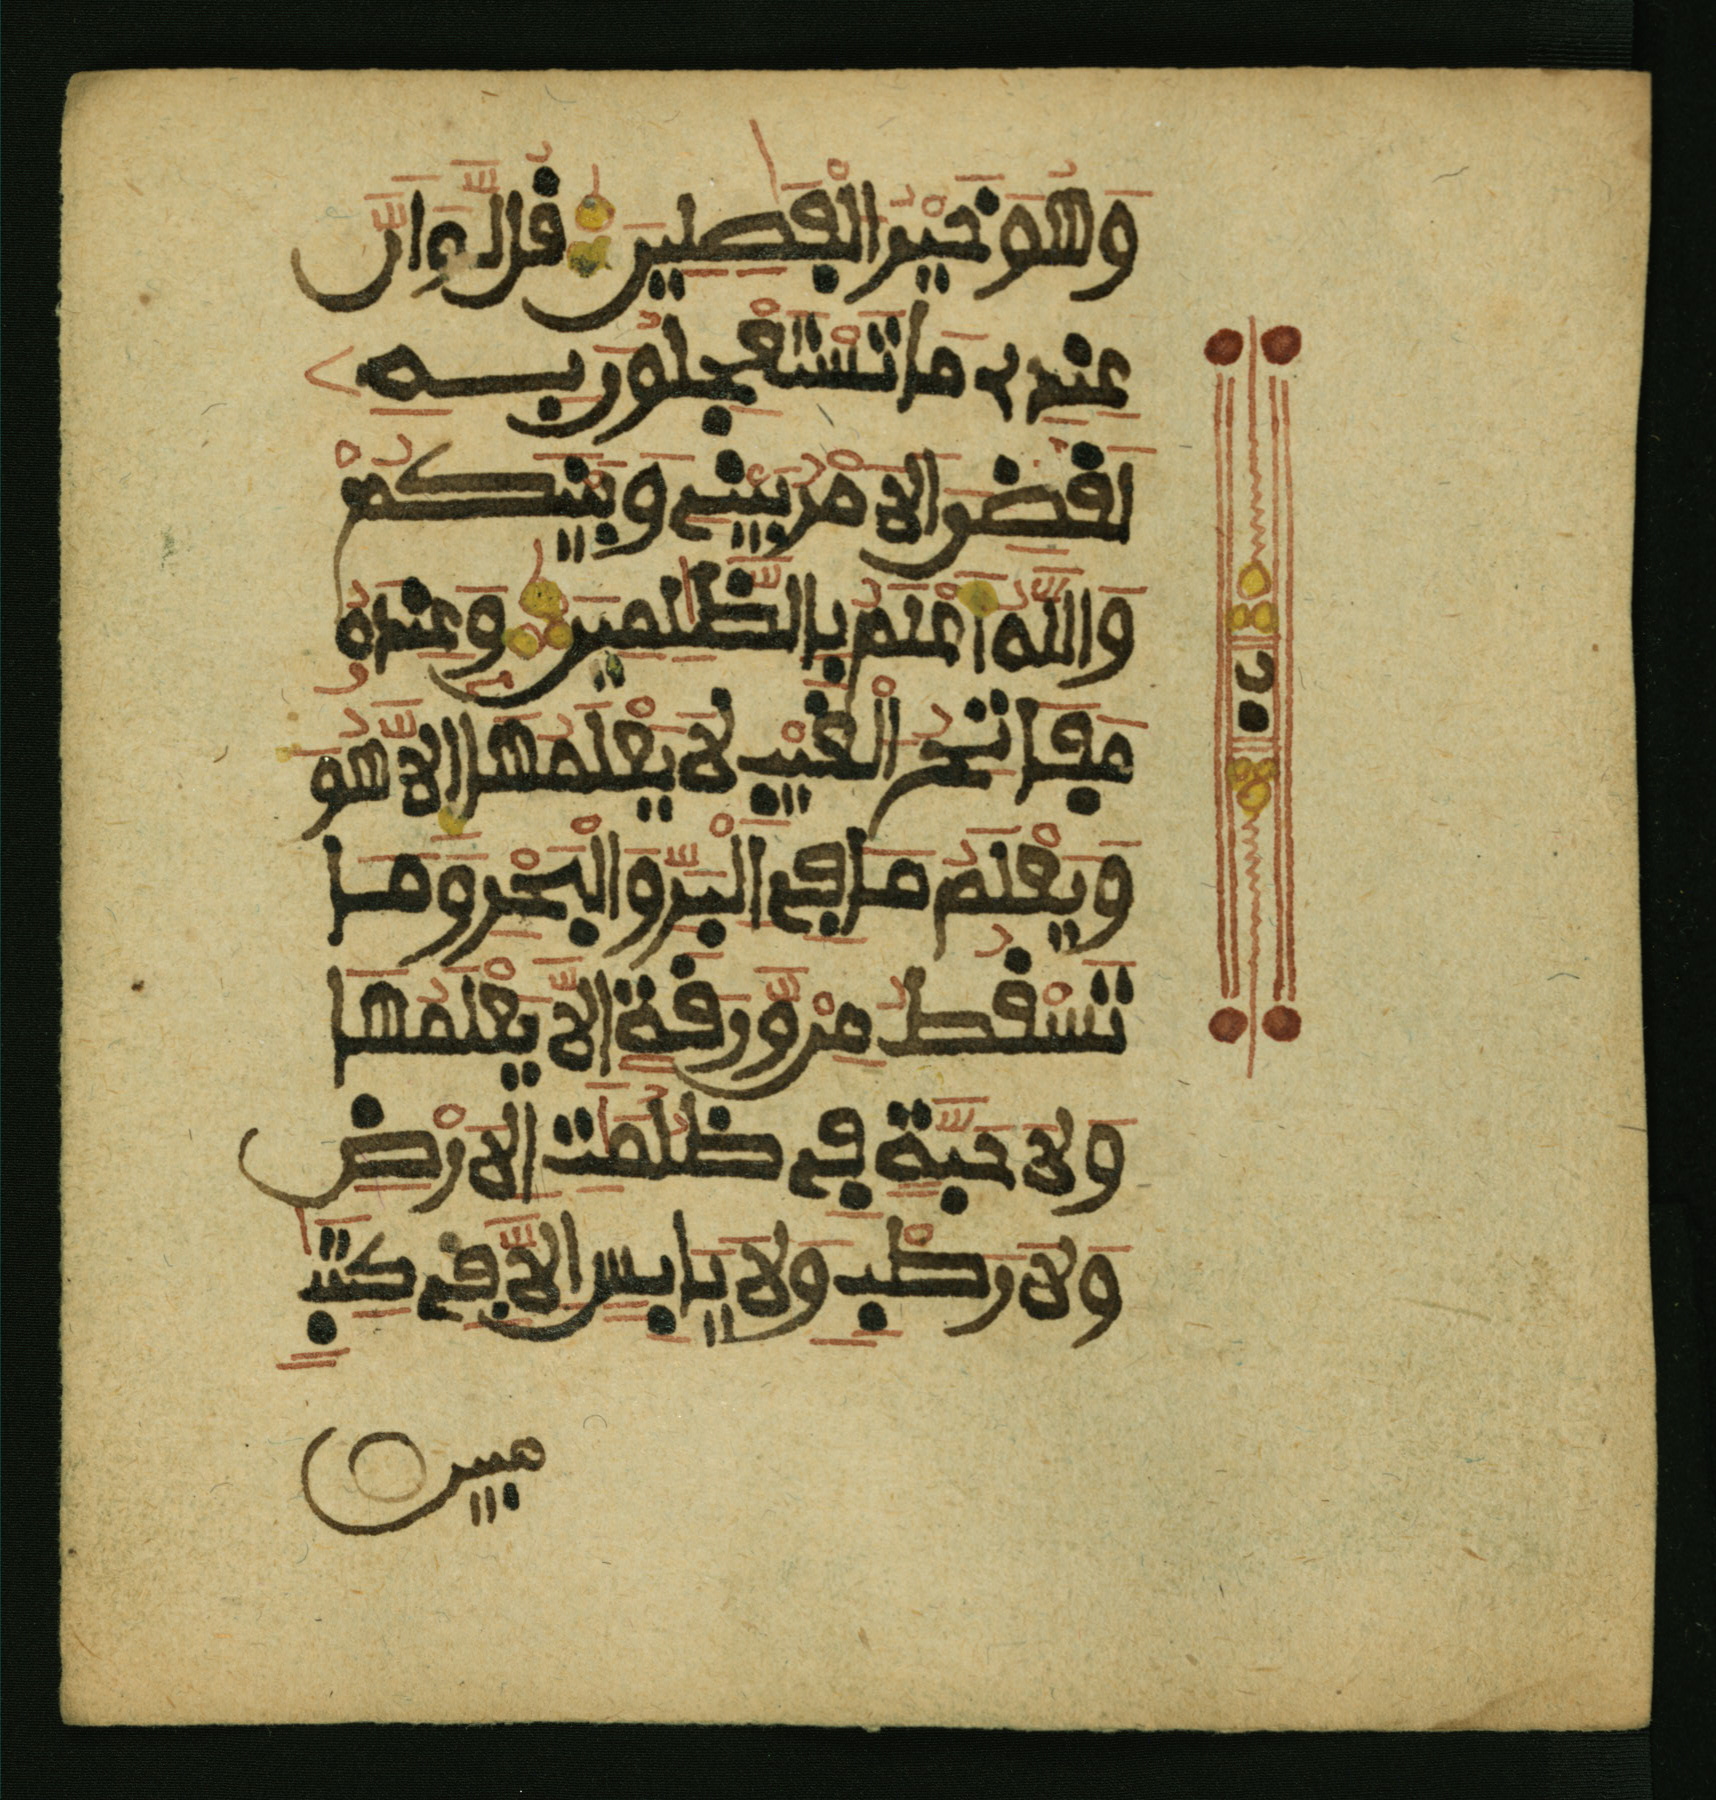 وَهُوَ خَيْرُ الْفَٰصِلِينَ قُل لَّوَ اَنَّ
عِندِے مَا تَسْتَعْجِلُونَ بِهِ
لَقُضِيَ الَامْرُ بَيْنِے وَبَيْنَكُمْ
وَاللَّهُ أَعْلَمُ بِالظَّٰلِمِينَ وَعِندَهُ
مَفَاتِحُ الْغَيْبِ لَا يَعْلَمُهَا إِلَّا هُوَ
وَيَعْلَمُ مَا فِے الْبَرِّ وَالْبَحْرِ وَمَا
تَسْقُطُ مِن وَّرَقَةٍ اِلَّا يَعْلَمُهَا
وَلَا حَبَّةٍ فِے ظُلُمَٰتِ الَارْضِ
وَلَا رَطْبٍ وَلَا يَابِسٍ اِلَّا فِے كِتَٰبٍ
مبين